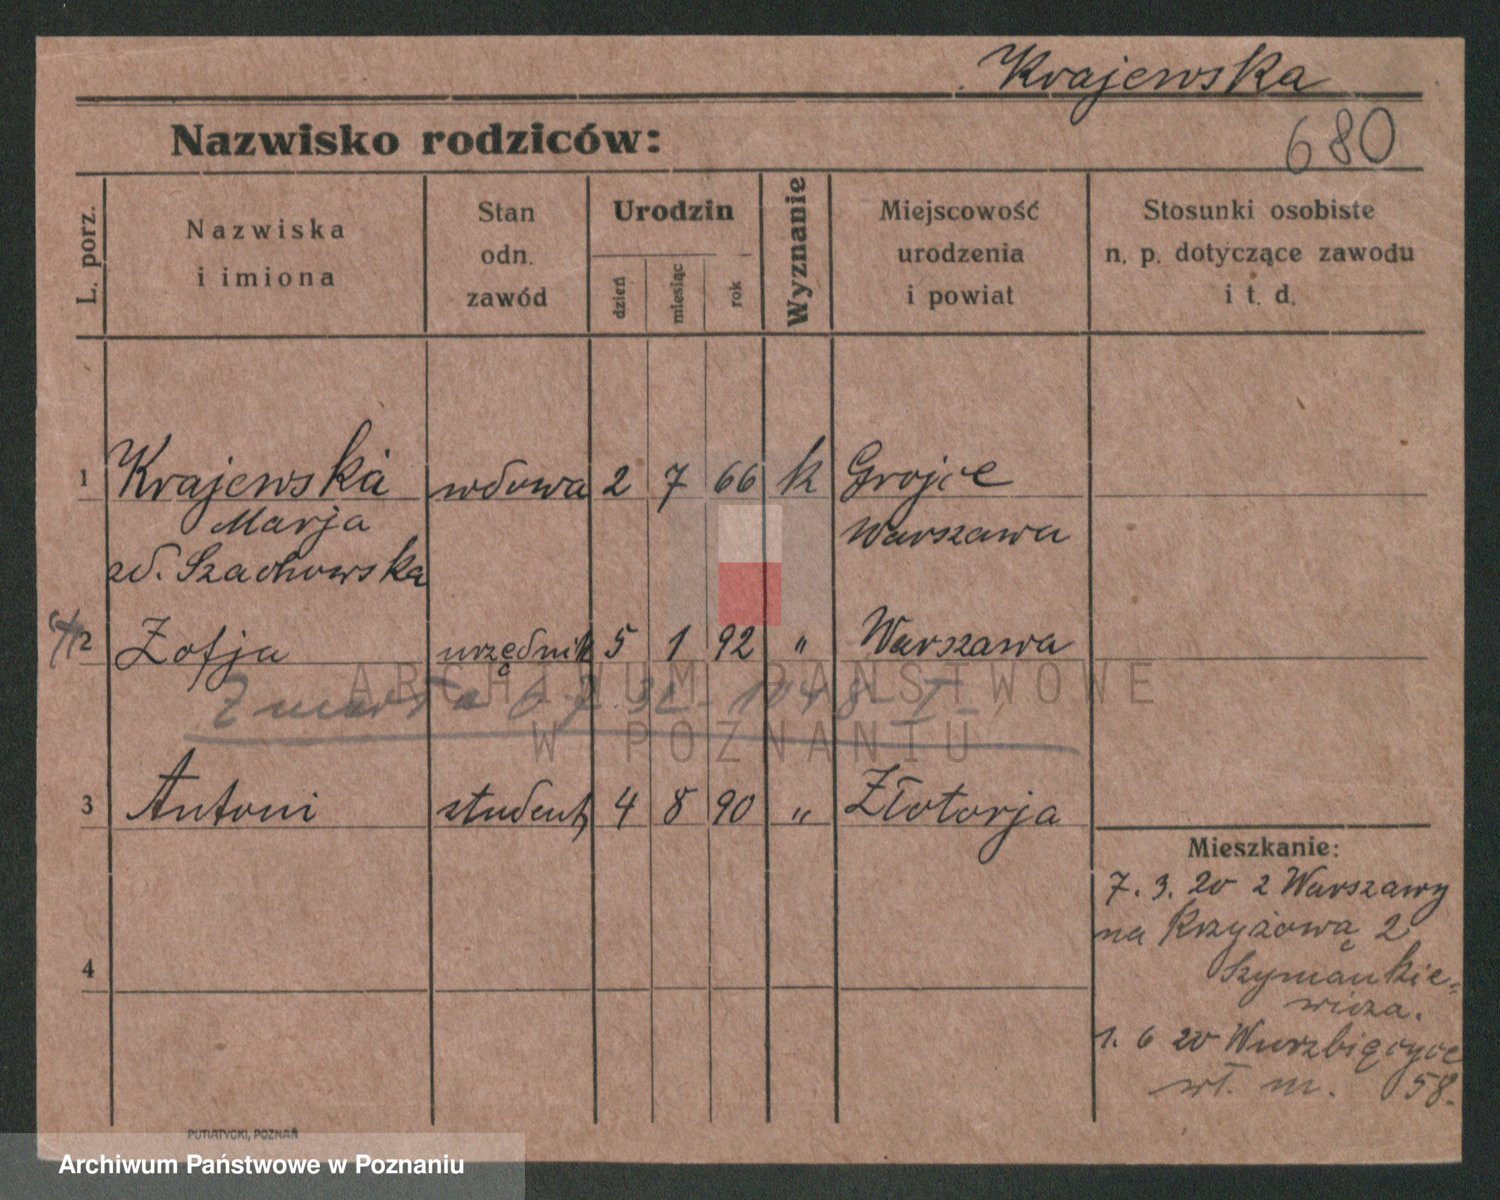 Krajewska
Nazwisko rodziców:
680
L. porz.
Nazwiska
i imiona
Stan
odn.
zawód
Urodzin
dzień
miesiąc
rok
Wyznanie
Miejscowość
urodzenia
i powiat
Stosunki osobiste
n. p. dotyczące zawodu
i t. d.
1 Krajewska wdowa 2 7 66 k Grojce
Marja Warszawa
zd. Szachowska
2 Zofja urzędnik 5 1 92 " Warszawa
Zmarła 6 7. 32 - 1048
3 Antoni student 4 8 90 " Złotorja
Mieszkanie:
7. 3. 20 z Warszawy
na Krzyżową 2
Szymankie-
wicza.
4
1. 6 20 Wierzbięcyce
wł. m. 58.
ARCHIWUM PAŃSTWOWE
W POZNANIU
PUTIATYCKI, POZNAŃ
Archiwum Państwowe w Poznaniu